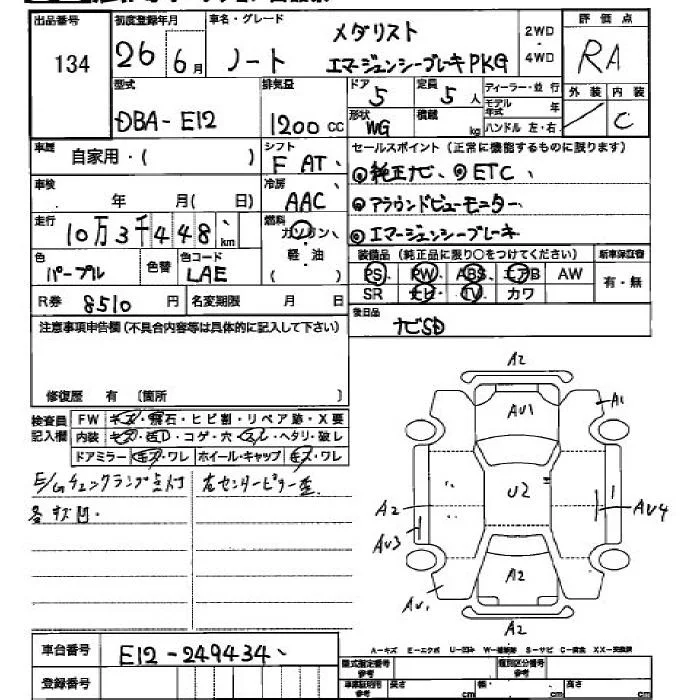 出品番号
134
初度登録年月
26 6月
車名・グレード
ノート
メダリスト
エマージェンシーブレーキPKG
2WD
・
4WD
評価点
RA
外装 内装
C
型式
DBA-E12
排気量
1200 cc
ドア
5
定員
5人
形状
WG
積載
kg
ディーラー・並行
モデル年式 年
ハンドル 左・右
車歴
自家用・( )
シフト
F AT
セールスポイント(正常に機能するものに限ります)
純正ナビ、ETC
アラウンドビューモニター
エマージェンシーブレーキ
車検
年 月( 日)
冷房
AAC
走行
10万3千448 km
燃料
ガソリン
軽・油
色
パープル
色替
色コード
LAE
装備品(純正品に限り○をつけてください)
新車保証書
PS PW ABS エアB AW
SR ナビ TV カワ
有・無
R券 8510 円
名変期限 月 日
後日品
ナビSD
注意事項申告欄(不具合内容等は具体的に記入して下さい)
修復歴 有 〔箇所 〕
検査員
記入欄
FW キズ・飛石・ヒビ割・リペア跡・X要
内装 キズ・汚れ・コゲ・穴・スレ・ヘタリ・破レ
ドアミラー キズ・ワレ ホイール・キャップ キズ・ワレ
E/Gチェックランプ点灯 右センターピラー歪
各キズ凹
A2
AU1
A1
U2
A2
AU3
AU4
A2
AU1
A2
A-キズ E-エクボ U-凹み W-補修跡 S-サビ C-腐食 XX-交換済
車台番号
E12-249434
登録番号
型式指定番号
参考
類別区分番号
参考
車庫証明用
参考
長さ cm
幅 cm
高さ cm